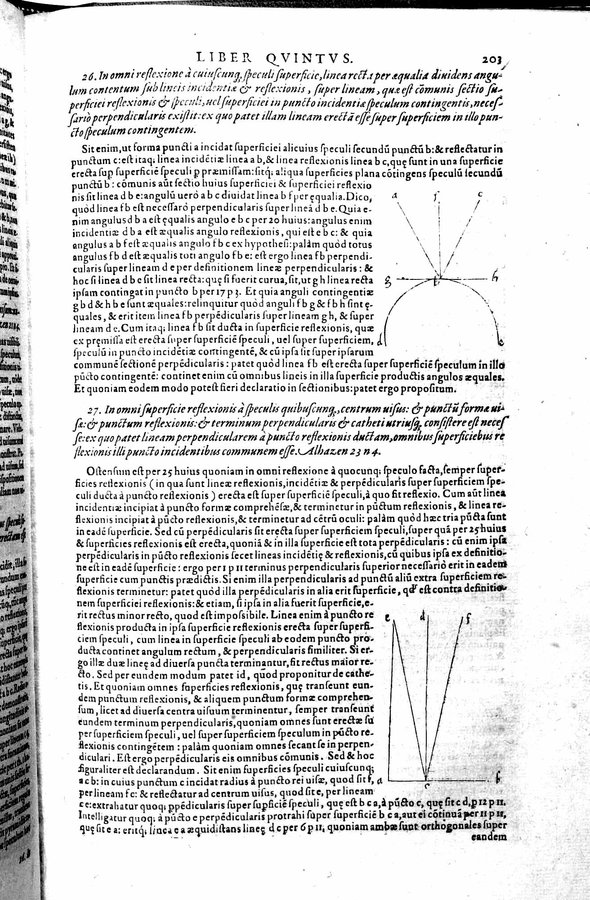 LIBER QVINTVS. 203
26. In omni reflexione à cuiuscunq; speculi superficie, linea recta per æqualia diuidens angu-
lum contentum sub lineis incidentiæ & reflexionis, super lineam, quæ est cõmunis sectio su-
perficiei reflexionis & speculi, uel superficiei in puncto incidentiæ speculum contingentis, neces-
sariò perpendicularis existit: ex quo patet illam lineam erectã esse super superficiem in illo pun-
cto speculum contingentem.
Sit enim, ut forma puncti a incidat superficiei alicuius speculi secundum punctũ b: & reflectatur in
punctum c: est itaq; linea incidẽtiæ linea a b, & linea reflexionis linea b c, quę sunt in una superficie
erecta sup superficiẽ speculi p præmissam: sitq; aliqua superficies plana cõtingens speculũ secundũ
punctũ b: cõmunis aũt sectio huius superficiei & superficiei reflexio
nis sit linea d b e: angulũ uerò a b c diuidat linea b f per ęqualia. Dico,
quòd linea f b est necessariò perpendicularis super lineã d b e. Quia e-
nim angulus d b a est ęqualis angulo e b c per 20 huius: angulus enim
incidentiæ d b a est æqualis angulo reflexionis, qui est e b c: & quia
angulus a b f est æqualis angulo f b c ex hypothesi: palàm quòd totus
angulus f b d est æqualis toti angulo f b e: est ergo linea f b perpendi-
cularis super lineam d e per definitionem lineæ perpendicularis: &
hoc si linea d b e sit linea recta: quę si fuerit curua, sit, ut g h linea recta
ipsam contingat in puncto b per 17 p 3. Et quia anguli contingentiæ
g b d & h b e sunt æquales: relinquitur quòd anguli f b g & f b h sint ę-
quales, & erit item linea f b perpẽdicularis super lineam g h, & super
lineam d e. Cum itaq; linea f b sit ducta in superficie reflexionis, quæ
ex pręmissa est erecta super superficiẽ speculi, uel super superficiem,
speculũ in puncto incidẽtiæ contingentẽ, & cũ ipsa sit super ipsarum
communẽ sectionẽ perpẽdicularis: patet quòd linea f b est erecta super superficiẽ speculum in illo
pũcto contingentẽ: continet enim cũ omnibus lineis in illa superficie productis angulos æquales.
Et quoniam eodem modo potest fieri declaratio in sectionibus: patet ergo propositum.
a f c
g b h
d e
27. In omni superficie reflexionis à speculis quibuscunq;, centrum uisus: & punctũ formæ ui-
sæ: & punctum reflexionis: & terminum perpendicularis & catheti utriusq; consistere est neces
se: ex quo patet lineam perpendicularem à puncto reflexionis ductam, omnibus superficiebus re
flexionis illi puncto incidentibus communem esse. Alhazen 23 n 4.
Ostensum est per 25 huius quoniam in omni reflexione à quocunq; speculo facta, semper super-
ficies reflexionis (in qua sunt lineæ reflexionis, incidẽtiæ & perpendicularis super superficiem spe-
culi ducta à puncto reflexionis) erecta est super superficiẽ speculi, à quo fit reflexio. Cum aũt linea
incidentiæ incipiat à puncto formæ comprehẽsæ, & terminetur in pũctum reflexionis, & linea re-
flexionis incipiat à pũcto reflexionis, & terminetur ad cẽtrũ oculi: palàm quòd hæc tria pũcta sunt
in eadẽ superficie. Sed cũ perpendicularis sit erecta super superficiem speculi, super quã per 25 huius
& superficies reflexionis est erecta, quoniã & in illa superficie est tota perpendicularis: cũ enim ipsa
perpẽdicularis in pũcto reflexionis secet lineas incidẽtię & reflexionis, cũ quibus ipsa ex definitio-
ne est in eadẽ superficie: ergo per 1 p 11 terminus perpendicularis superior necessariò erit in eadem
superficie cum punctis prædictis. Si enim illa perpendicularis ad punctũ aliũ extra superficiem re-
flexionis terminetur: patet quòd illa perpẽdicularis in alia erit superficie, qđ est contra definitio-
nem superficiei reflexionis: & etiam, si ipsa in alia fuerit superficie, e-
rit rectus minor recto, quod est impossibile. Linea enim à puncto re
flexionis producta in ipsa superficie reflexionis erecta super superfi-
ciem speculi, cum linea in superficie speculi ab eodem puncto pro-
ducta continet angulum rectum, & perpendicularis similiter. Si er-
go illæ duæ lineę ad diuersa puncta terminantur, fit rectus maior re-
cto. Sed per eundem modum patet id, quod proponitur de cathe-
tis. Et quoniam omnes superficies reflexionis, quę transeunt eun-
dem punctum reflexionis, & aliquem punctum formæ comprehen-
sum, licet ad diuersa centra uisuum terminentur, semper transeunt
eundem terminum perpendicularis, quoniam omnes sunt erectæ su
per superficiem speculi, uel super superficiem speculum in pũcto re
flexionis contingẽtem: palàm quoniam omnes secant se in perpen-
diculari. Est ergo perpẽdicularis eis omnibus cõmunis. Sed & hoc
figuraliter est declarandum. Sit enim superficies speculi cuiuscunq;
a c b: in cuius punctum c incidat radius à puncto rei uisæ, quod sit f,
per lineam f c: & reflectatur ad centrum uisus, quod sit e, per lineam
c e: extrahatur quoq; ppẽdicularis super supficiẽ speculi, quę est b c a, à pũcto c, quę sit c d, p 12 p 11.
Intelligatur quoq; à pũcto e perpẽdicularis protrahi super superficiẽ b c a, aut ei cõtinuã per 11 p 11,
quę sit e a: eritq; linea e a æquidistans lineę d c per 6 p 11, quoniam ambæ sunt orthogonales super
eandem
e d f
a c b